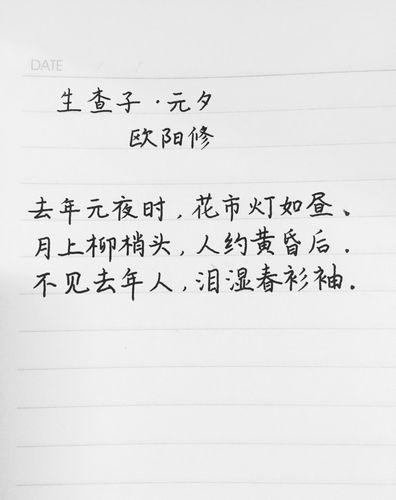 DATE / /
生查子·元夕
欧阳修
去年元夜时,花市灯如昼、
月上柳梢头,人约黄昏后.
不见去年人,泪湿春衫袖.